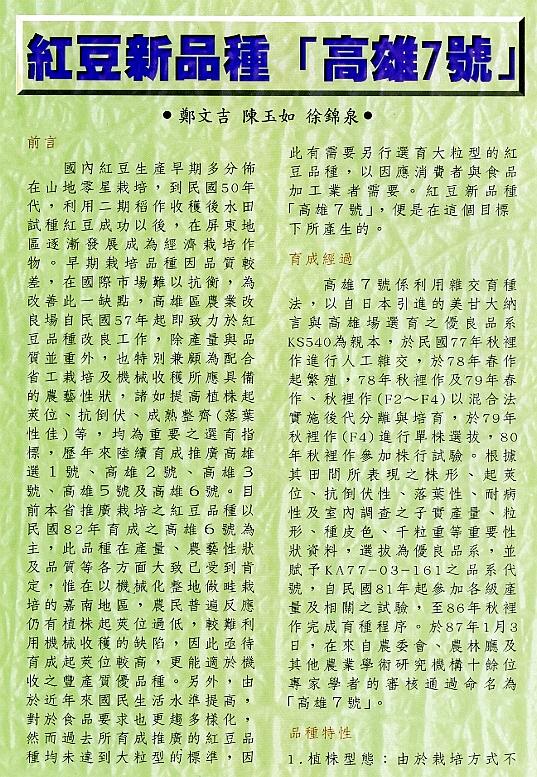 紅豆新品種「高雄7號」
●鄭文吉 陳玉如 徐錦泉●
前言
國內紅豆生產早期多分佈
在山地零星栽培，到民國50年
代，利用二期稻作收穫後水田
試種紅豆成功以後，在屏東地
區逐漸發展成為經濟栽培作
物。早期栽培品種因品質較
差，在國際市場難以抗衡，為
改善此一缺點，高雄區農業改
良場自民國57年起即致力於紅
豆品種改良工作，除產量與品
質並重外，也特別兼顧為配合
省工栽培及機械收穫所應具備
的農藝性狀，諸如提高植株起
莢位、抗倒伏、成熟整齊(落葉
性佳)等，均為重要之選育指
標，歷年來陸續育成推廣高雄
選1號、高雄2號、高雄3
號、高雄5號及高雄6號。目
前本省推廣栽培之紅豆品種以
民國82年育成之高雄6號為
主，此品種在產量、農藝性狀
及品質等各方面大致已受到肯
定，惟在以機械化整地做畦栽
培的嘉南地區，農民普遍反應
仍有植株起莢位過低，較難利
用機械收穫的缺陷，因此亟待
育成起莢位較高，更能適於機
收之豐產質優品種。另外，由
於近年來國民生活水準提高，
對於食品要求也更趨多樣化，
然而過去所育成推廣的紅豆品
種均未達到大粒型的標準，因
此有需要另行選育大粒型的紅
豆品種，以因應消費者與食品
加工業者需要。紅豆新品種
「高雄7號」，便是在這個目標
下所產生的。
育成經過
高雄7號係利用雜交育種
法，以自日本引進的美甘大納
言與高雄場選育之優良品系
KS540為親本，於民國77年秋裡
作進行人工雜交，於78年春作
起繁殖，78年秋裡作及79年春
作、秋裡作(F2～F4)以混合法
實施後代分離與培育，於79年
秋裡作(F4)進行單株選拔，80
年秋裡作參加株行試驗。根據
其田間所表現之株形、起莢
位、抗倒伏性、落葉性、耐病
性及室內調查之子實產量、粒
形、種皮色、千粒重等重要性
狀資料，選拔為優良品系，並
賦予KA77-03-161之品系代
號，自民國81年起參加各級產
量及相關之試驗，至86年秋裡
作完成育種程序。於87年1月3
日，在來自農委會、農林廳及
其他農業學術研究機構十餘位
專家學者的審核通過命名為
「高雄7號」。
品種特性
1.植株型態：由於栽培方式不